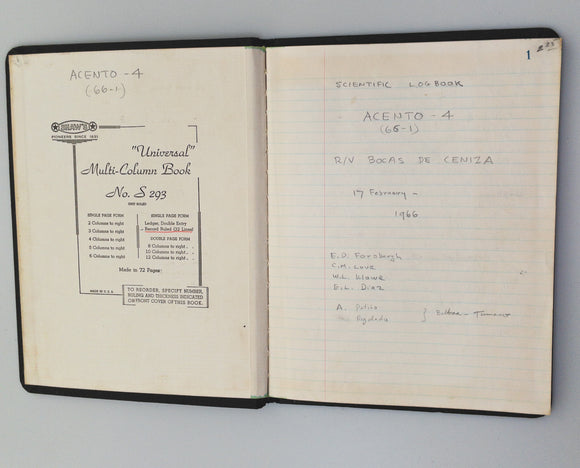 ACENTO - 4
(66-1)
SHAW'S
PIONEERS SINCE 1831
"Universal"
Multi-Column Book
No. S 293
UNIT RULED
SINGLE PAGE FORM
2 Columns to right
3 Columns to right
4 Columns to right
5 Columns to right
6 Columns to right
SINGLE PAGE FORM
Ledger, Double Entry
Record Ruled (32 Lines)
DOUBLE PAGE FORM
8 Columns to right
10 Columns to right
12 Columns to right
Made in 72 Pages:
MADE IN U.S.A.
TO REORDER, SPECIFY NUMBER,
RULING AND THICKNESS INDICATED
ON FRONT COVER OF THIS BOOK.
1
SCIENTIFIC LOGBOOK
ACENTO - 4
(66-1)
R/V BOCAS DE CENIZA
17 February -
1966
E.D. Forsbergh
C.M. Love
W.L. Klawe
E.L. Diaz
A.